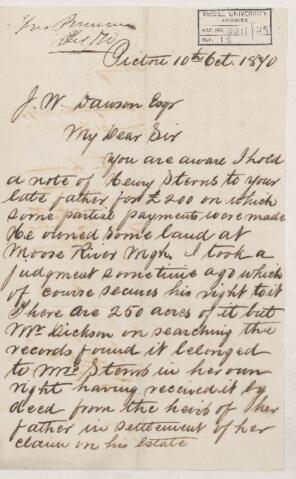 McGILL UNIVERSITY
ARCHIVES
ACC. NO. 2211/29
REF. 15
Pictou 10th Oct. 1870
J. W. Dawson Esqr
My Dear Sir
you are aware I hold
a note of Henry Sterns to your
late father for £200 on which
some partial payments were made
He owned some land at
Moose River Mgh. I took a
judgment sometime ago which
of course secures his right to it
There are 250 acres of it but
Mr. Dickson on searching the
records found it belonged
to Mrs Sterns in her own
right having received it by
deed from the heirs of her
father in settlement of her
claim on his Estate